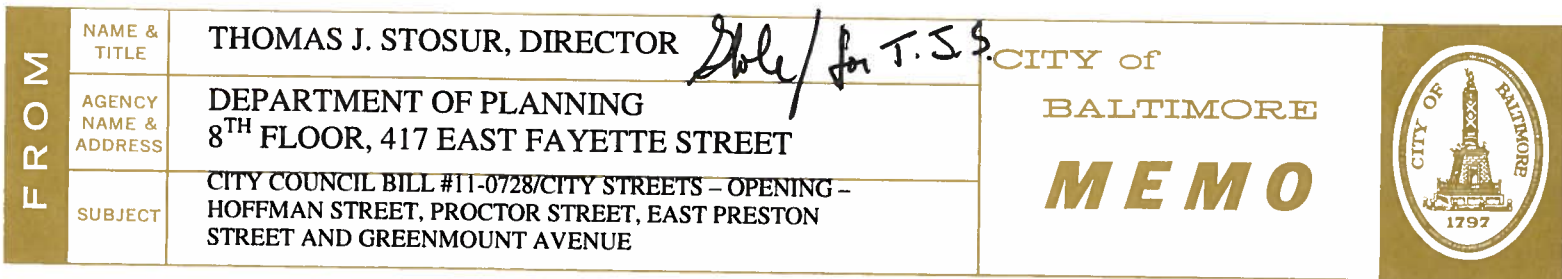 FROM
NAME & TITLE
THOMAS J. STOSUR, DIRECTOR for T.J.S.
AGENCY NAME & ADDRESS
DEPARTMENT OF PLANNING
8TH FLOOR, 417 EAST FAYETTE STREET
SUBJECT
CITY COUNCIL BILL #11-0728/CITY STREETS – OPENING –
HOFFMAN STREET, PROCTOR STREET, EAST PRESTON
STREET AND GREENMOUNT AVENUE
CITY of
BALTIMORE
MEMO
CITY OF BALTIMORE
1797